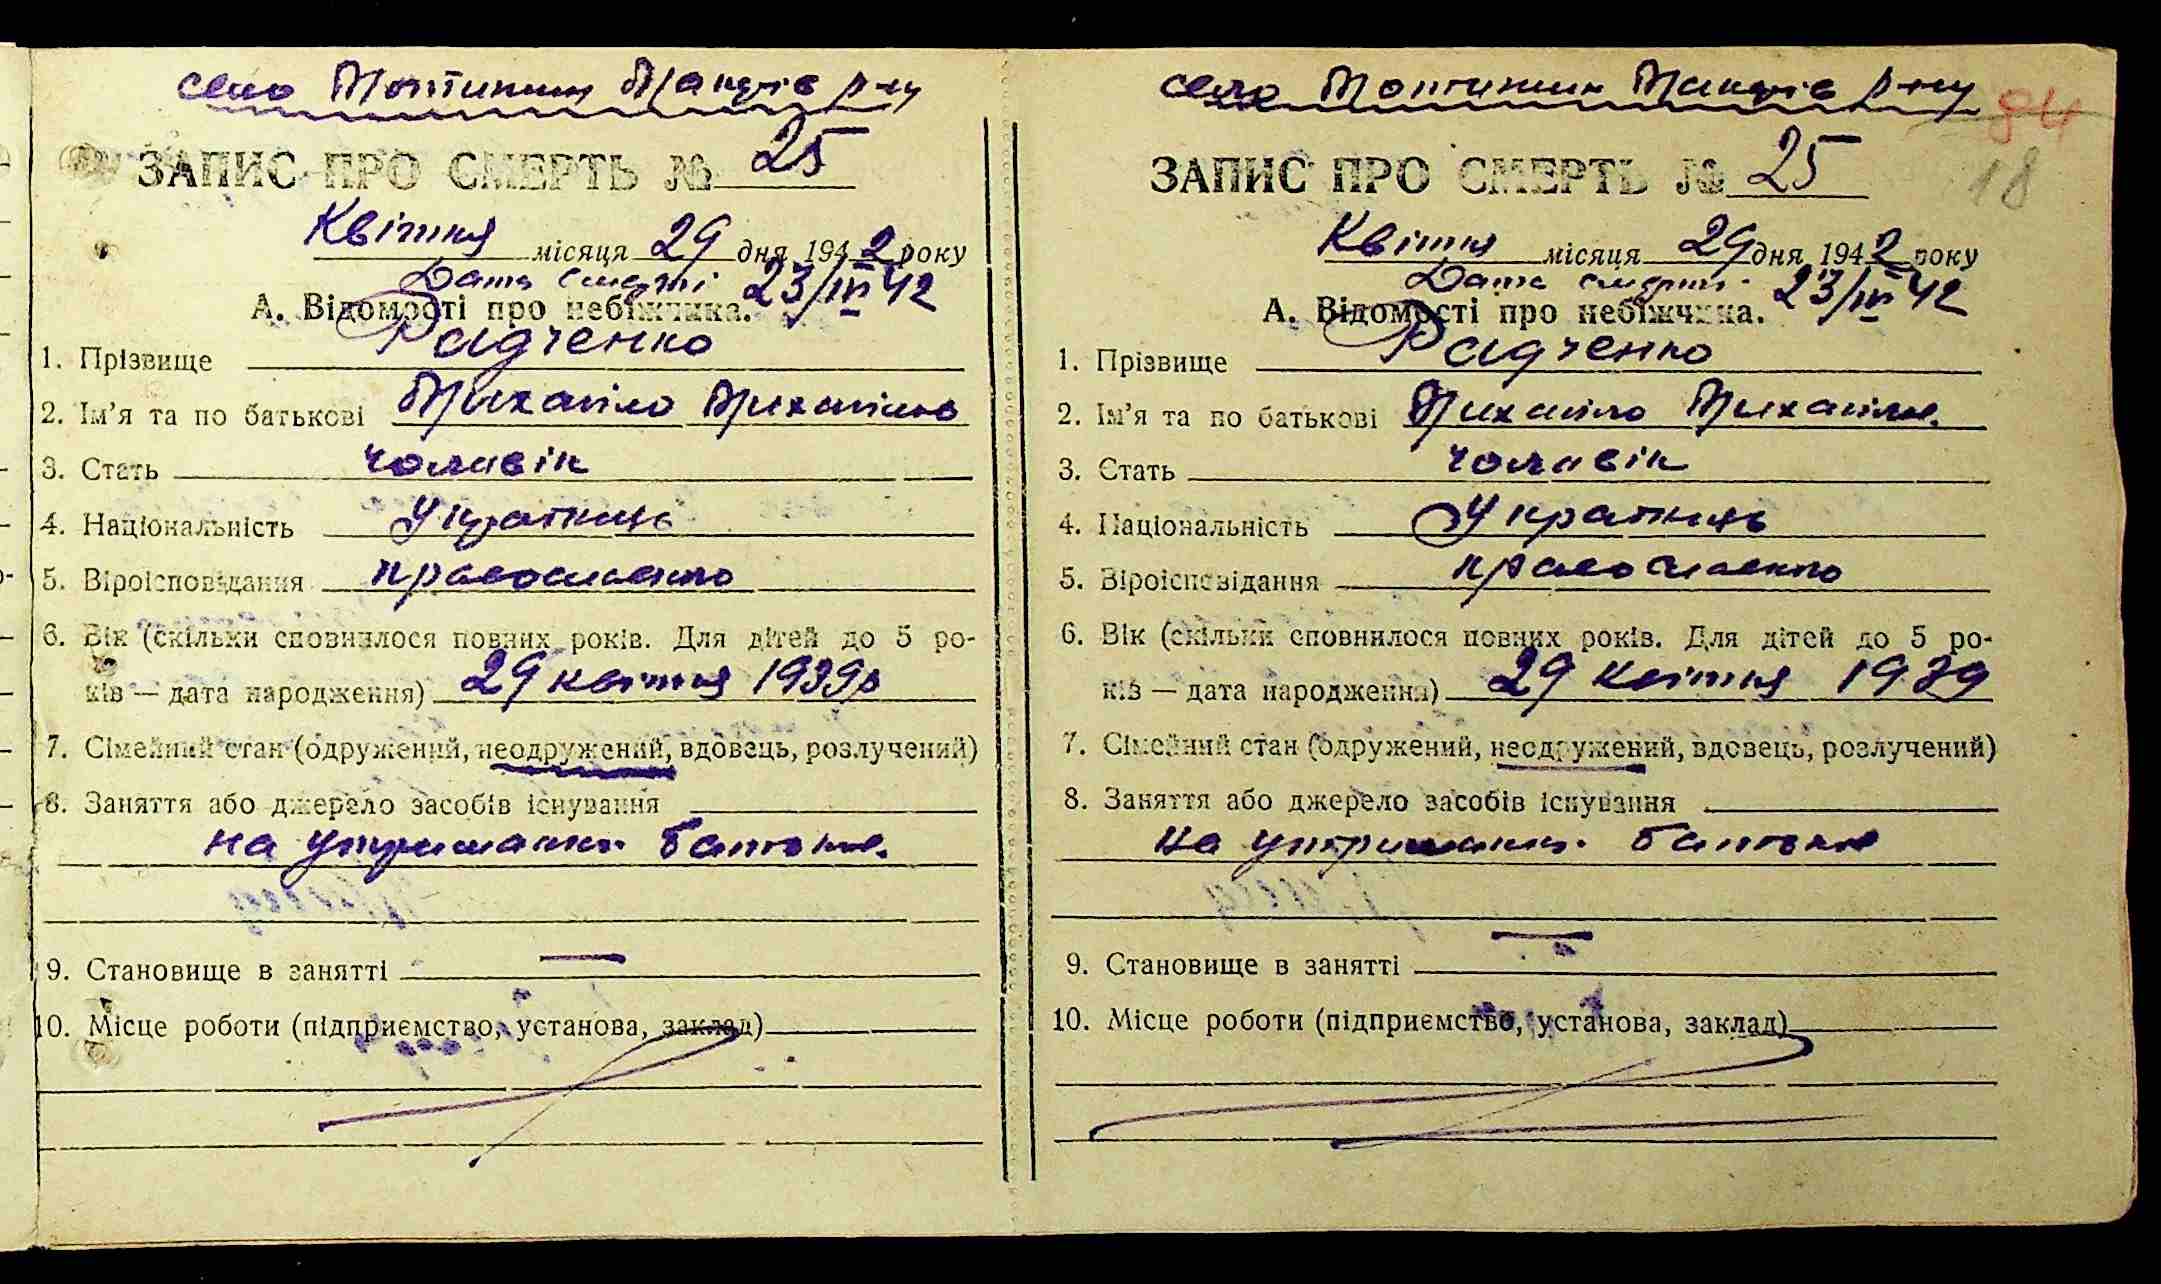 село Мотижин Макарів р-ну
ЗАПИС ПРО СМЕРТЬ № 25
Квітня місяця 29 дня 1942 року
Дата смерті 23/III 42
А. Відомості про небіжчика.
1. Прізвище Радченко
2. Ім'я та по батькові Михайло Михайлов
3. Стать чоловік
4. Національність Українець
5. Віроісповідання православно
6. Вік (скільки сповнилося повних років. Для дітей до 5 ро-
ків — дата народження) 29 квітня 1939р
7. Сімейний стан (одружений, неодружений, вдовець, розлучений)
8. Заняття або джерело засобів існування
на утриманні батька.
9. Становище в занятті —
10. Місце роботи (підприємство, установа, заклад)
село Мотижин Макарів р-ну
84
ЗАПИС ПРО СМЕРТЬ № 25
18
Квітня місяця 29 дня 1942 року
Дата смерті 23/III 42
А. Відомості про небіжчика.
1. Прізвище Радченко
2. Ім'я та по батькові Михайло Михайлов.
3. Стать чоловік
4. Національність Українець
5. Віроісповідання православно
6. Вік (скільки сповнилося повних років. Для дітей до 5 ро-
ків — дата народження) 29 квітня 1939
7. Сімейний стан (одружений, неодружений, вдовець, розлучений)
8. Заняття або джерело засобів існування
на утриманні батька
9. Становище в занятті —
10. Місце роботи (підприємство, установа, заклад)